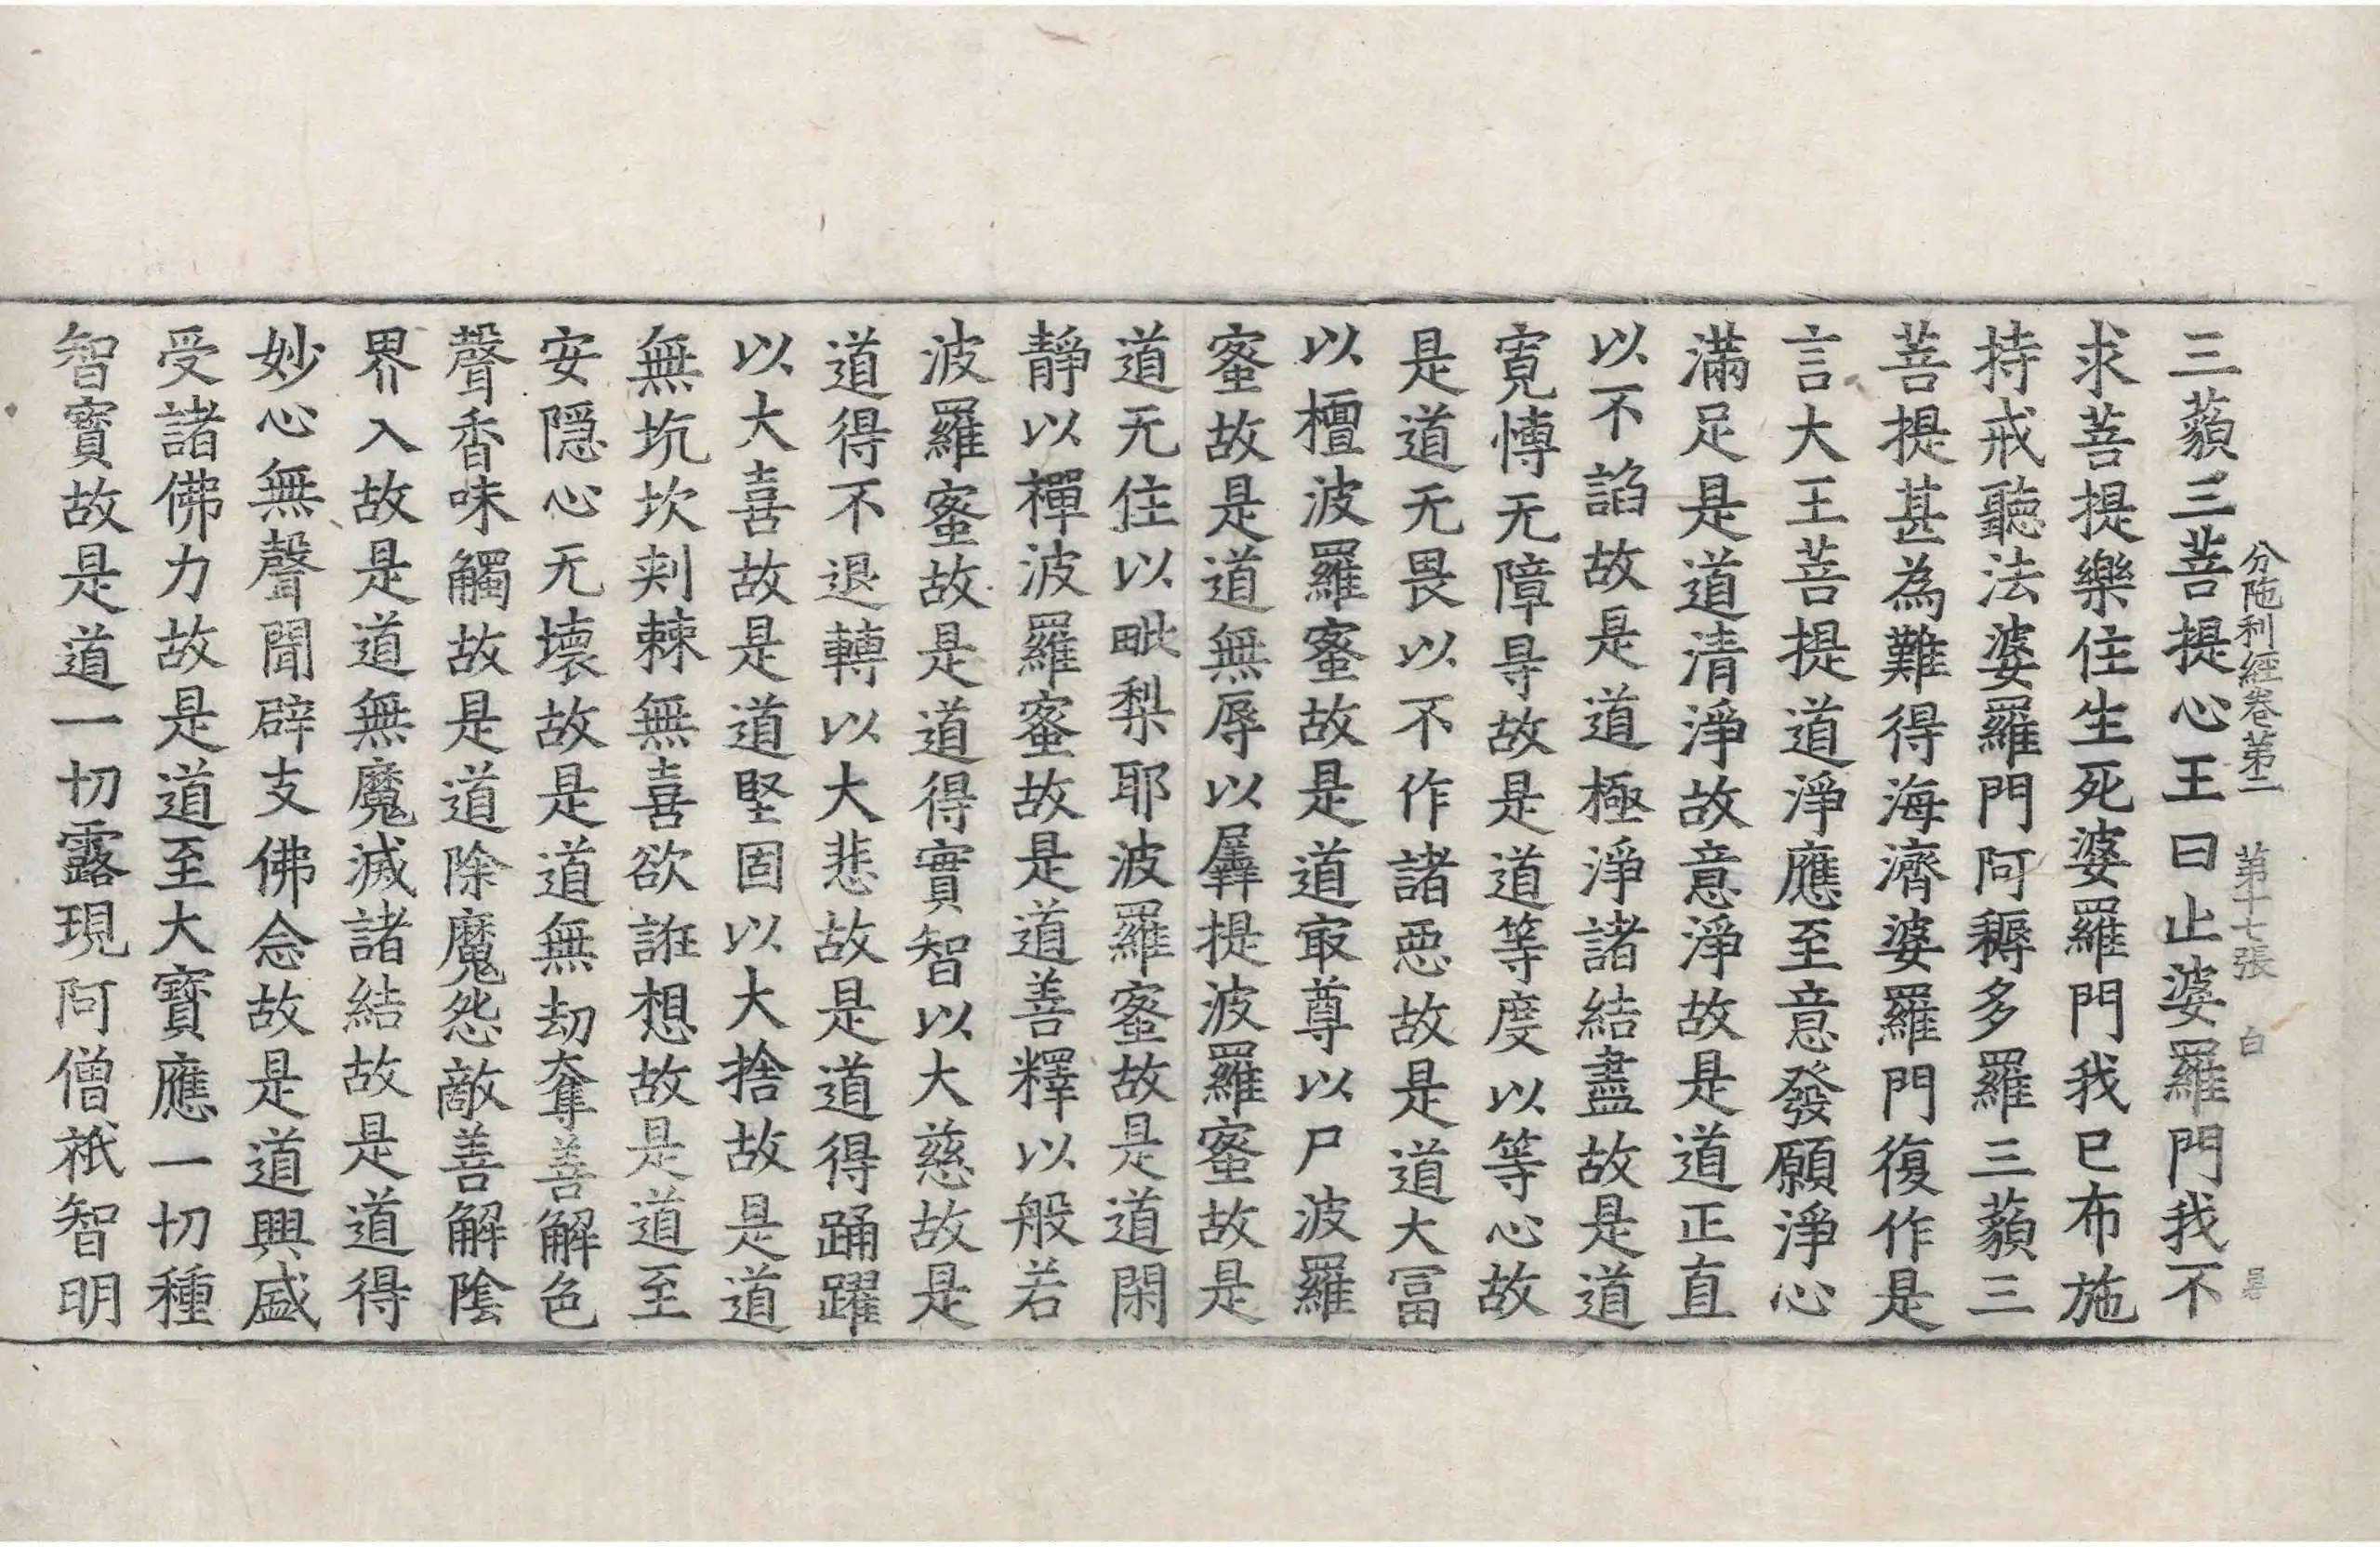 分陁利経卷第二 第十七張 白
三藐三菩提心王曰止婆羅門我不
求菩提樂住生死婆羅門我已布施
持戒聽法婆羅門阿耨多羅三藐三
菩提甚為難得海濟婆羅門復作是
言大王菩提道淨應至意發願淨心
滿足是道清淨故意淨故是道正直
以不諂故是道極淨諸結盡故是道
寬愽无障㝵故是道等度以等心故
是道无畏以不作諸惡故是道大冨
以檀波羅蜜故是道㝡尊以尸波羅
蜜故是道無辱以羼提波羅蜜故是
道无住以毗梨耶波羅蜜故是道閑
靜以禪波羅蜜故是道善釋以般若
波羅蜜故是道得實智以大慈故是
道得不退轉以大悲故是道得踊躍
以大喜故是道堅固以大捨故是道
無坑坎刾棘無喜欲誑想故是道至
安隠心无壞故是道無劫奪善解色
聲香味觸故是道除魔怨敵善解陰
界入故是道無魔滅諸結故是道得
妙心無聲聞辟支佛念故是道興盛
受諸佛力故是道至大寶應一切種
智寶故是道一切露現阿僧祇智明